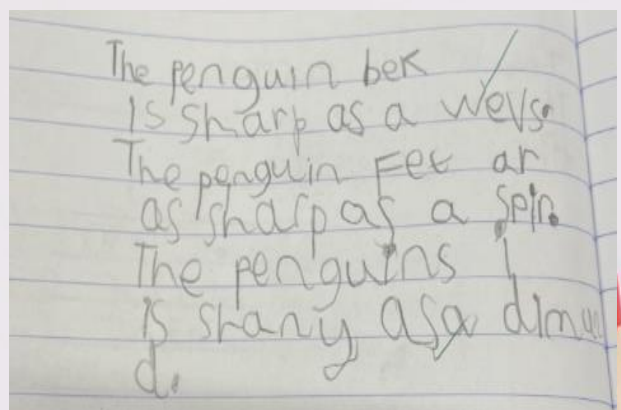 The penguin bek
is sharp as a wevs.
The penguin Feet ar
as sharp as a spin.
The penguins i
is shany as a diman
d.